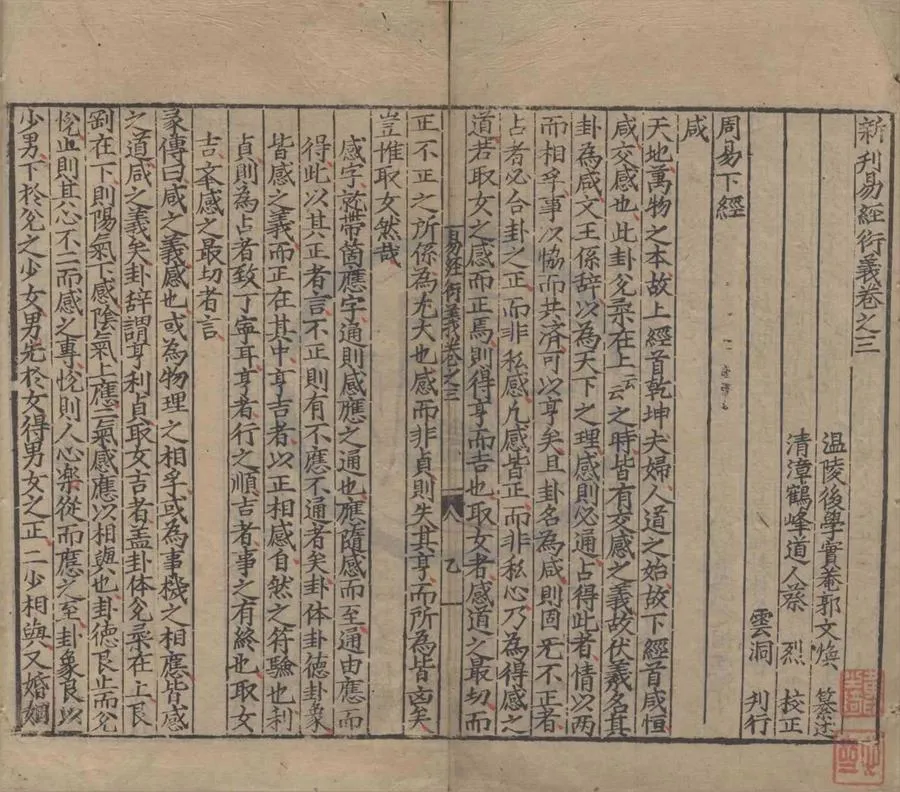 新刊易經衍義卷之三
温陵後學實菴郭文煥 纂述
清漳鶴峰道人蔡 烈 校正
雲洞 刊行
周易下經
咸
天地萬物之本故上經首乾坤夫婦人道之始故下經首咸恒
咸交感也此卦兊柔在上云云之時皆有交感之義故伏羲名其
卦為咸文王係辞以為天下之理感則必通占得此者情以两
而相孚事以恊而共濟可以亨矣且卦名為咸則固无不正者
占者必合卦之正而非私感凡感皆正而非私心乃為得感之
道若取女之感而正焉則得亨而吉也取女者感道之最切而
正不正之所係為尤大也感而非貞則失其亨而所為皆凶矣
豈惟取女然哉
易經衍義卷之三
八
乙
感字就帶箇應字通則感應之通也應隨感而至通由應而
得此以其正者言不正則有不應不通者矣卦体卦德卦象
皆感之義而正在其中亨吉者以正相感自然之符驗也利
貞則為占者致丁寧耳亨者行之順吉者事之有終也取女
吉亦感之最切者言
彖傳曰咸之義感也或為物理之相孚或為事機之相應皆感
之道咸之義矣卦辞謂亨利貞取女吉者盖卦体兊柔在上艮
剛在下則陽氣下感陰氣上應二氣感應以相與也卦德艮止而兊
恱止則其心不二而感之專恱則人心樂從而應之至卦象艮以
少男下於兊之少女男先於女得男女之正二少相與又婚姻